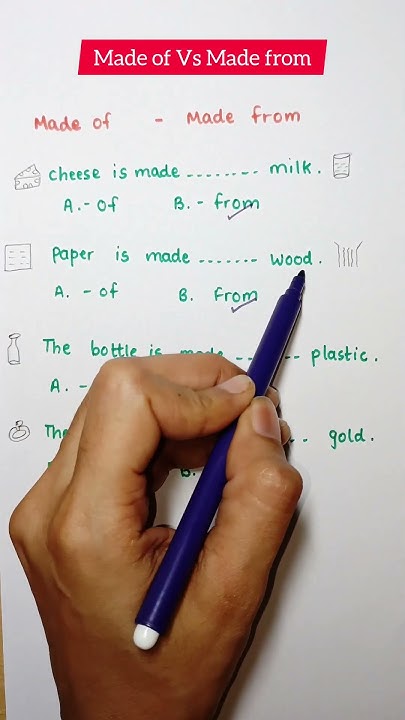 Made of Vs Made from
Made of - Made from
Cheese is made ........ milk.
A. - of B. - from
Paper is made ....... wood.
A. - of B. from
The bottle is made .. .. plastic.
A. -
The .. gold.
B.